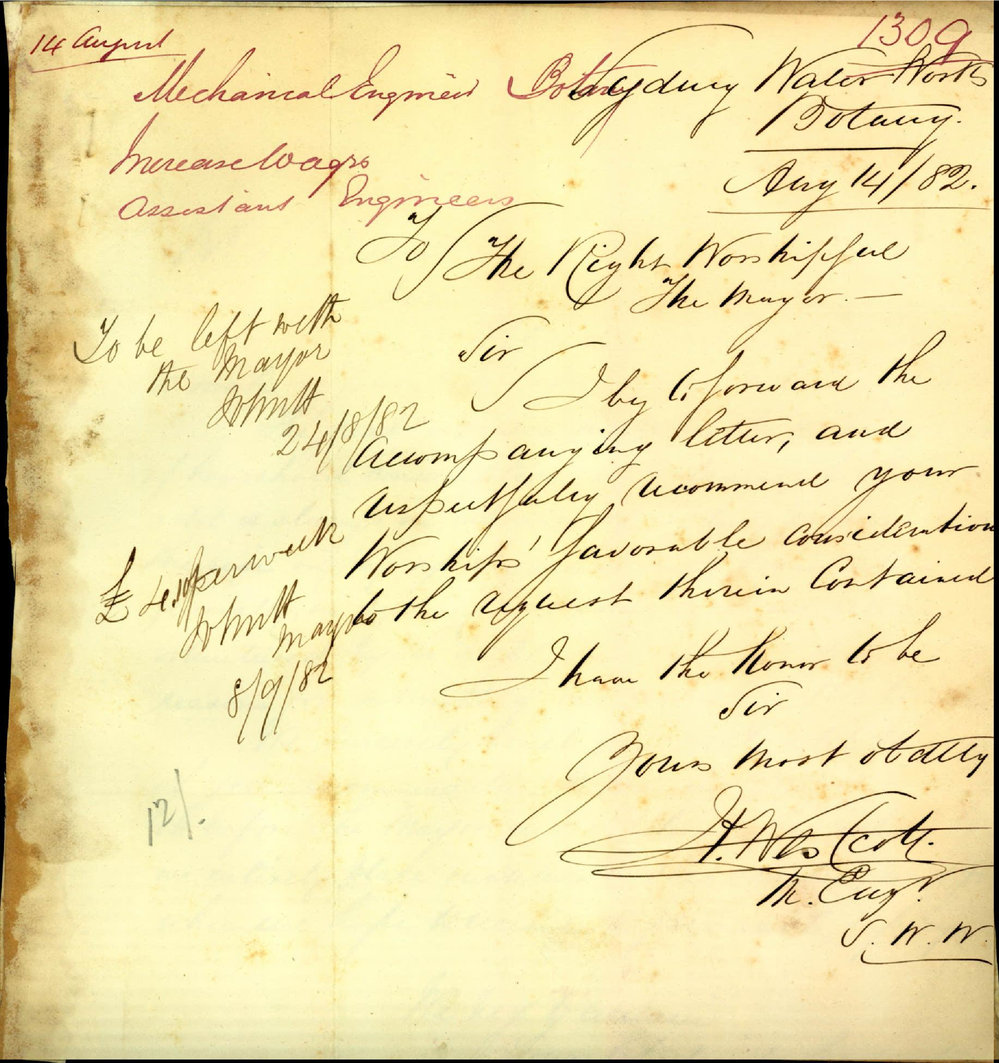 14 August
1309
Mechanical Engineer Botany
Increase Wages
Assistant Engineers
Sydney Water Works
Botany.
Aug 14/82.
To The Right Worshipful
The Mayor.—
Sir
I beg to forward the
accompanying letter, and
respectfully recommend your
Worships' favorable consideration
to the request therein Contained
I have the honor to be
Sir
Yours most obdtly
H. Westcott.
M. Engr.
S. W. W.
To be left with
the Mayor
24/8/82
£4.10 per week
Mayor
8/9/82
12/.